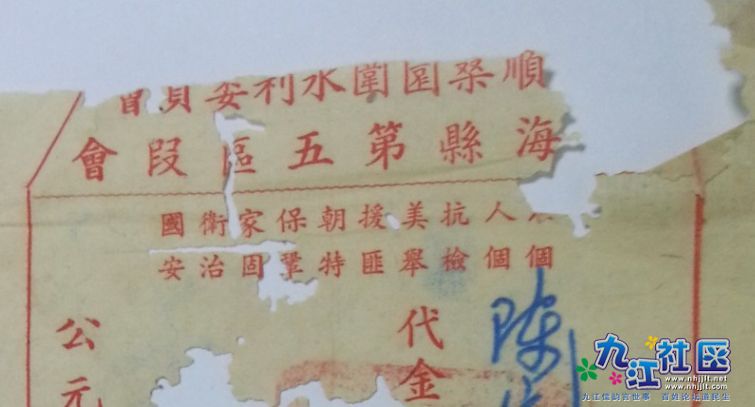 順桑園圍水利委員會
海縣第五區段會
人抗美援朝保家衛國
個個檢舉匪特鞏固治安
陳
代金
公元
九江社区
www.nhjjlt.net
www.nhjjlt.com
百姓论坛道民生